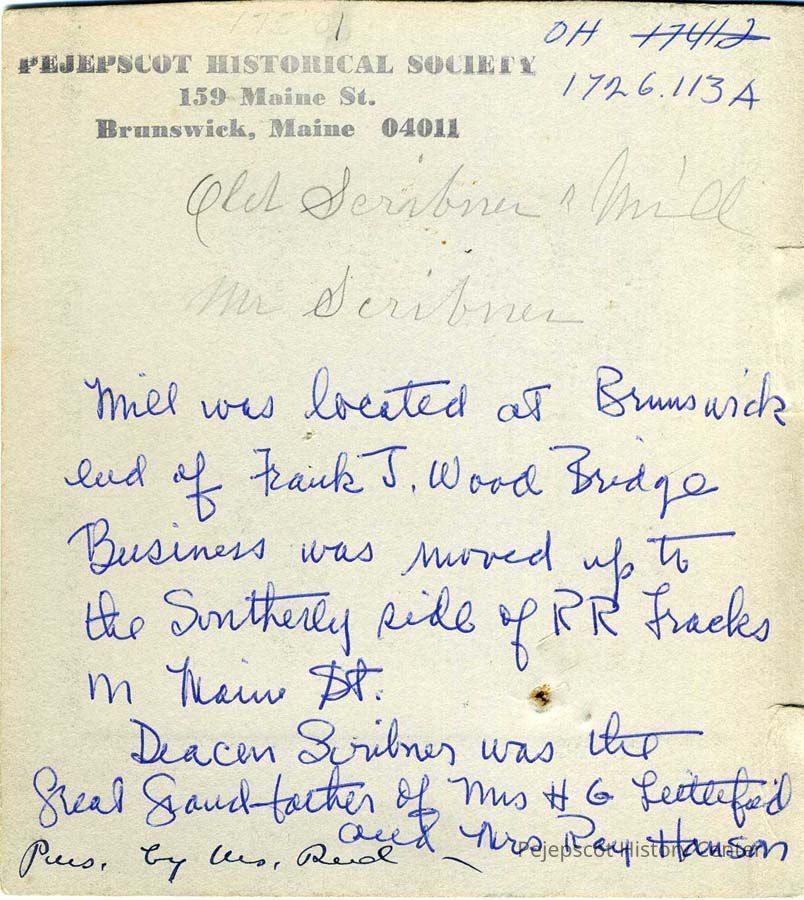 OH 17412
1726.113A
PEJEPSCOT HISTORICAL SOCIETY
159 Maine St.
Brunswick, Maine 04011
Old Scribner's Mill
Mr Scribner
Mill was located at Brunswick
end of Frank J. Wood Bridge
Business was moved up to
the Southerly side of RR Tracks
on Maine St.
Deacon Scribner was the
Great Grandfather of Mrs H G
and Mrs Ray Hanson
Pres. by Mrs. Reed
Pejepscot History Center